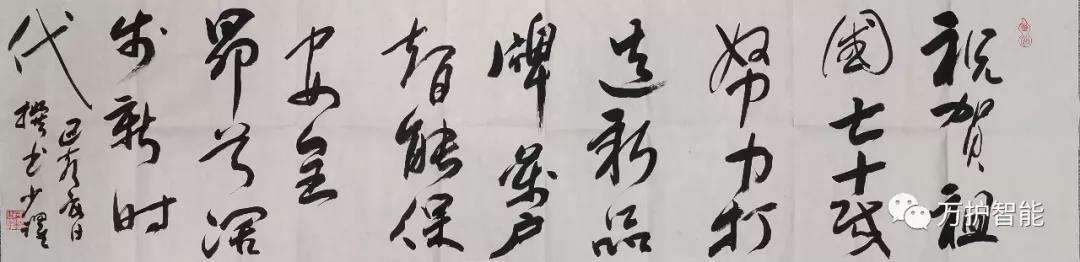 祝贺祖
國七十岁
努力打
造新品
牌萬户
智能保
安全
昂首阔
步新时
代
己亥 日
撰书少
万护智能